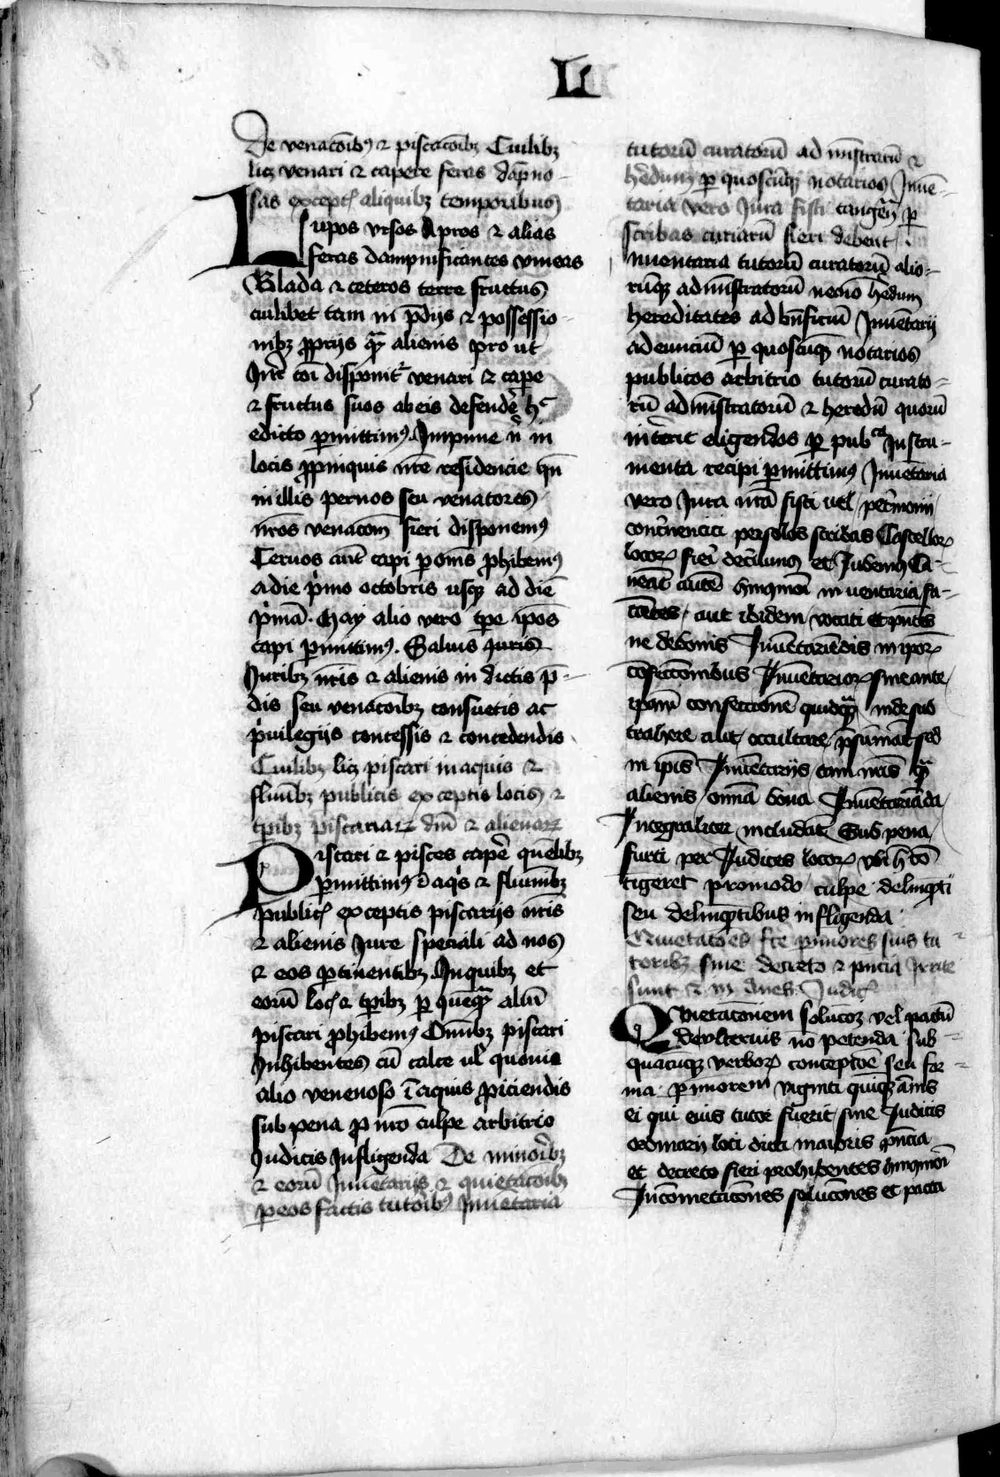 LI
De venacõibꝫ ⁊ piscacõibꝫ Cuilibꝫ
licꝫ venari ⁊ capere feras dãpno-
sas except̃ aliquibꝫ temporibus
Lupos vrsos Apros ⁊ alias
feras dampnificantes vineas
Blada ⁊ ceteros terre fructus
cuilibet tam in p̃dijs ⁊ possessio-
nibꝫ ꝓprijs qᷓ alienis pro ut
Jure cõi disponit᷑ venari ⁊ cape
⁊ fructus suos ab eis defendẽ hͨ
edicto ꝑmittimꝰ Jmpune ñ in
locis ꝓpinquis nr̃e residencie qñ
in illis per nos seu venatores
nr̃os venacõm fieri disponemꝰ
Ceruos aũt capi ꝑ om̃s ꝓhibemꝰ
a die p̃mo octobris usqꝫ ad diẽ
p̃mã. May alio vero tꝑe ip̃os
capi ꝑmittimꝰ. Saluis juris
Juribꝫ nr̃is ⁊ alienis in dictis p̃-
dis seu venacõibꝫ consuetis ac
p̃uilegijs concessis ⁊ concedendis
Cuilibꝫ licꝫ piscari in aquis ⁊
flum̃bꝫ publicis exceptis locis ⁊
tꝑibꝫ piscariaꝝ dñi ⁊ alienaꝝ
Piscari ⁊ pisces capẽ quẽlibꝫ
ꝑmittimꝰ ĩ aqͥs ⁊ flum̃ibꝫ
public̃ exceptis piscarijs nr̃is
⁊ alienis Jure speciali ad nos
⁊ eos ꝑtinentibꝫ Jn quibꝫ et
eorũ loc̃ ⁊ tꝑibꝫ ꝑ quẽqᷓ aliũ
piscari ꝓhibemꝰ Om̃ibꝫ piscari
Jnhibentes cũ calce ul̃ quouis
alio venenoso ĩ aquis ꝓiciendis
sub pena ꝓ mõ culpe arbitrio
Judicis Jnfligenda De minoribꝫ
⁊ eorũ Jnuẽtarijs ⁊ quietacõibꝫ
ꝑ eos factis tutõibꝰ Jnuẽtaria
tutorũ curatorũ ad mĩstratũ ⁊
hẽdum ꝑ quoscũqꝫ notarios Jnuẽ-
taria vero Jura fisci tangẽn ꝑ
scribas curiarũ fieri debent
Jnuentaria tutorũ curatorũ alio-
rũqꝫ adm̃istratorũ necnõ hẽdum
hereditates ad bñficiũ Jnuẽtarij
adeunciũ ꝑ quoscũqꝫ notarios
publicos arbitrio tutorũ curato-
rũ adm̃istratorũ ⁊ heredũ quorũ
intẽrit eligendos ꝑ pubᶜᵃ Jnstru-
menta recipi ꝑmittimꝰ Jnuẽtaria
vero Jura nr̃a fisci uel pet̃monij
concñencia per solos scribas Castelloꝝ
locoꝝ fieri decñimꝰ et Jubemꝰ Ca-
ueãt autẽ hm̃oi inuentaria fa-
ciẽtes aut ibidem vocati et p̃ntes
ne de bonis Jnuẽtariẽdis in ipoꝝ
cõfectionibus Jnuẽtarioꝝ siue ante
ipam̃ confectionẽ quidqᷓ inde sub
trahere aut occultare p̃sumãt sed
in ip̃is Jnuẽtarijs tam nr̃is qᷓ
alienis om̃ia bona Jnuẽtariãda
Jntegraliter includãt Sub pena
furti per Judices locoꝝ ubi h̃ cõ
tigeret pro modo culpe delinqͣti
seu delinqͣtibus infligenda
Quietacões fc̃e ꝑ minores suis tu-
toribꝫ sine decreto ⁊ p̃ncia Jrrite
sunt ⁊ in anes. Judic̃
Quietacionem solucõꝫ vel pactũ
de vlterius nõ petenda sub
quacũqꝫ verboꝝ concepcõe seu for-
ma. ꝑ minorem viginti quiqꝫ ãnis
ei qui eius tutor fuerit sine Judicis
ordinarij loci dicti maioris p̃ncia
et decreto fieri prohibentes hm̃oi
Jncõmetacões solucões et pacta